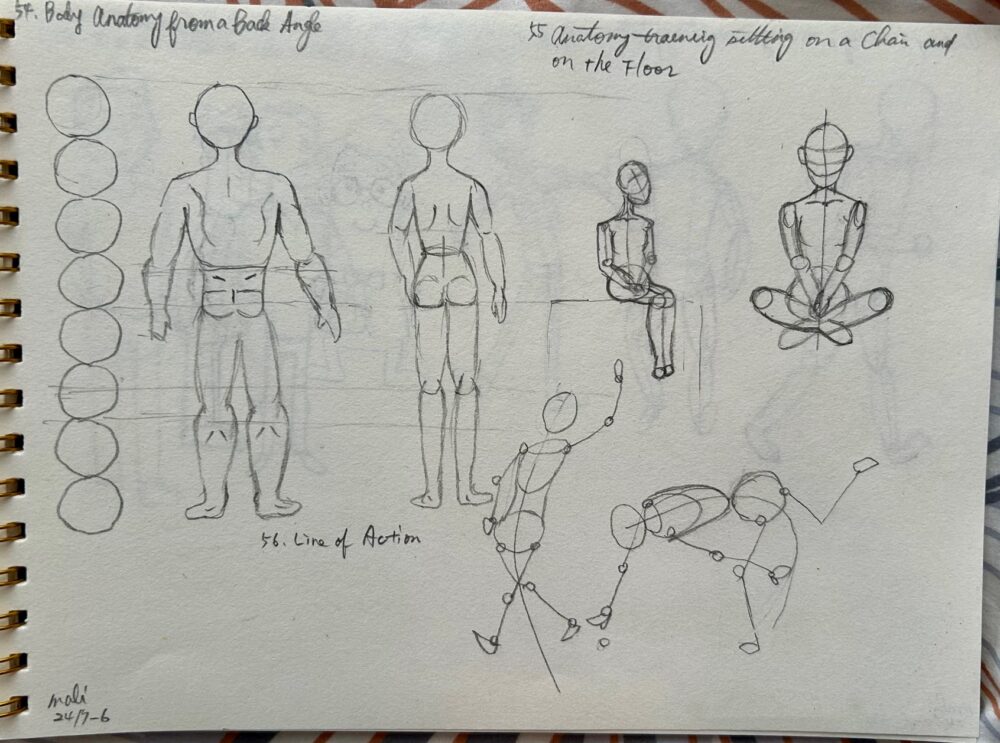 54. Body Anatomy from a Back Angle
55 Anatomy training sitting on a Chair and
on the Floor
56. Line of Action
mali
24/7-6